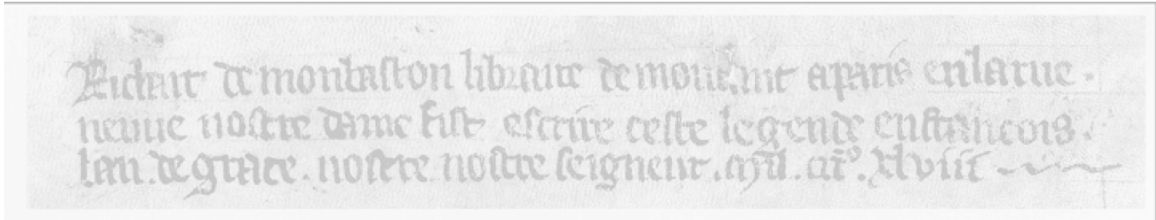 Richart de montbaston libraire demourant aparis enlarue.
neuue nostre dame fist escrire ceste legende enfrancois.
lan.degrace.nostre nostre seigneur.mil.CCC.xlviii